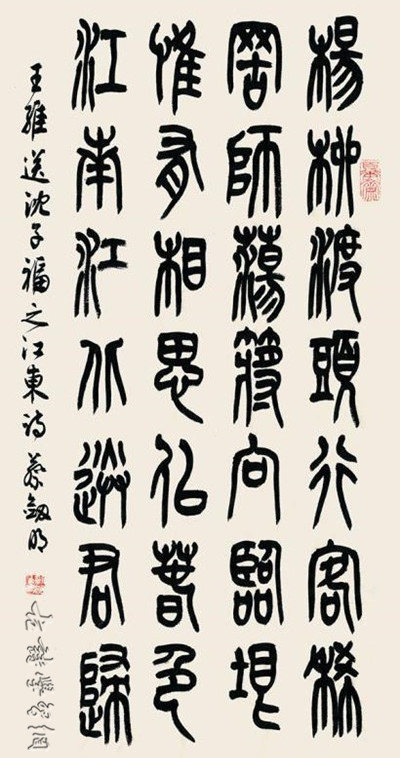 楊柳渡頭行客稀
罟師蕩槳向臨圻
惟有相思似春色
江南江北送君歸
王維送沈子福之江東詩蔡劔明